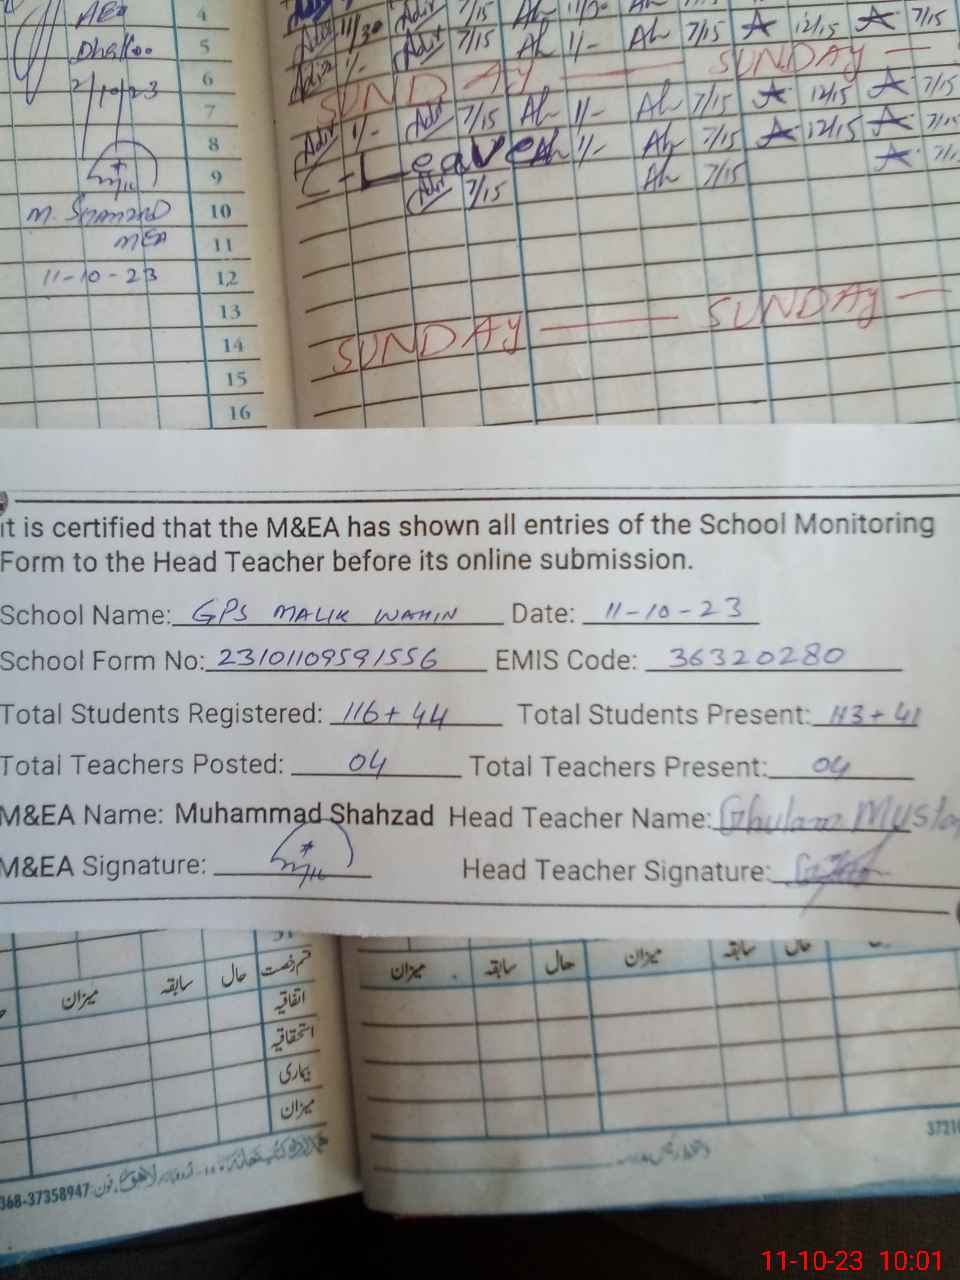 AEO
4
Dhalloo
5
2/10/23
6
7
8
9
M. Shahzad
10
MEA
11
11-10-23
12
13
14
15
16
11/30 7/15 11/30 7/15 12/15 7/15
1/- 7/15 1/- 7/15
SUNDAY — SUNDAY —
1/- 7/15 1/- 7/15 12/15 7/15
C-Leave 1/- 7/15 12/15 7/15
7/15 7/15
SUNDAY — SUNDAY —
it is certified that the M&EA has shown all entries of the School Monitoring
Form to the Head Teacher before its online submission.
School Name: GPS MALIK WAHIN Date: 11-10-23
School Form No: 23101109591556 EMIS Code: 36320280
Total Students Registered: 116+44 Total Students Present: 113+41
Total Teachers Posted: 04 Total Teachers Present: 04
M&EA Name: Muhammad Shahzad Head Teacher Name: Ghulam Musta
M&EA Signature: Head Teacher Signature:
قسم رخصت حال سابقہ میزان
حال سابقہ میزان حال سابقہ میزان
اتفاقیہ
استحقاقیہ
بیماری
میزان
368-37358947
3721
11-10-23 10:01